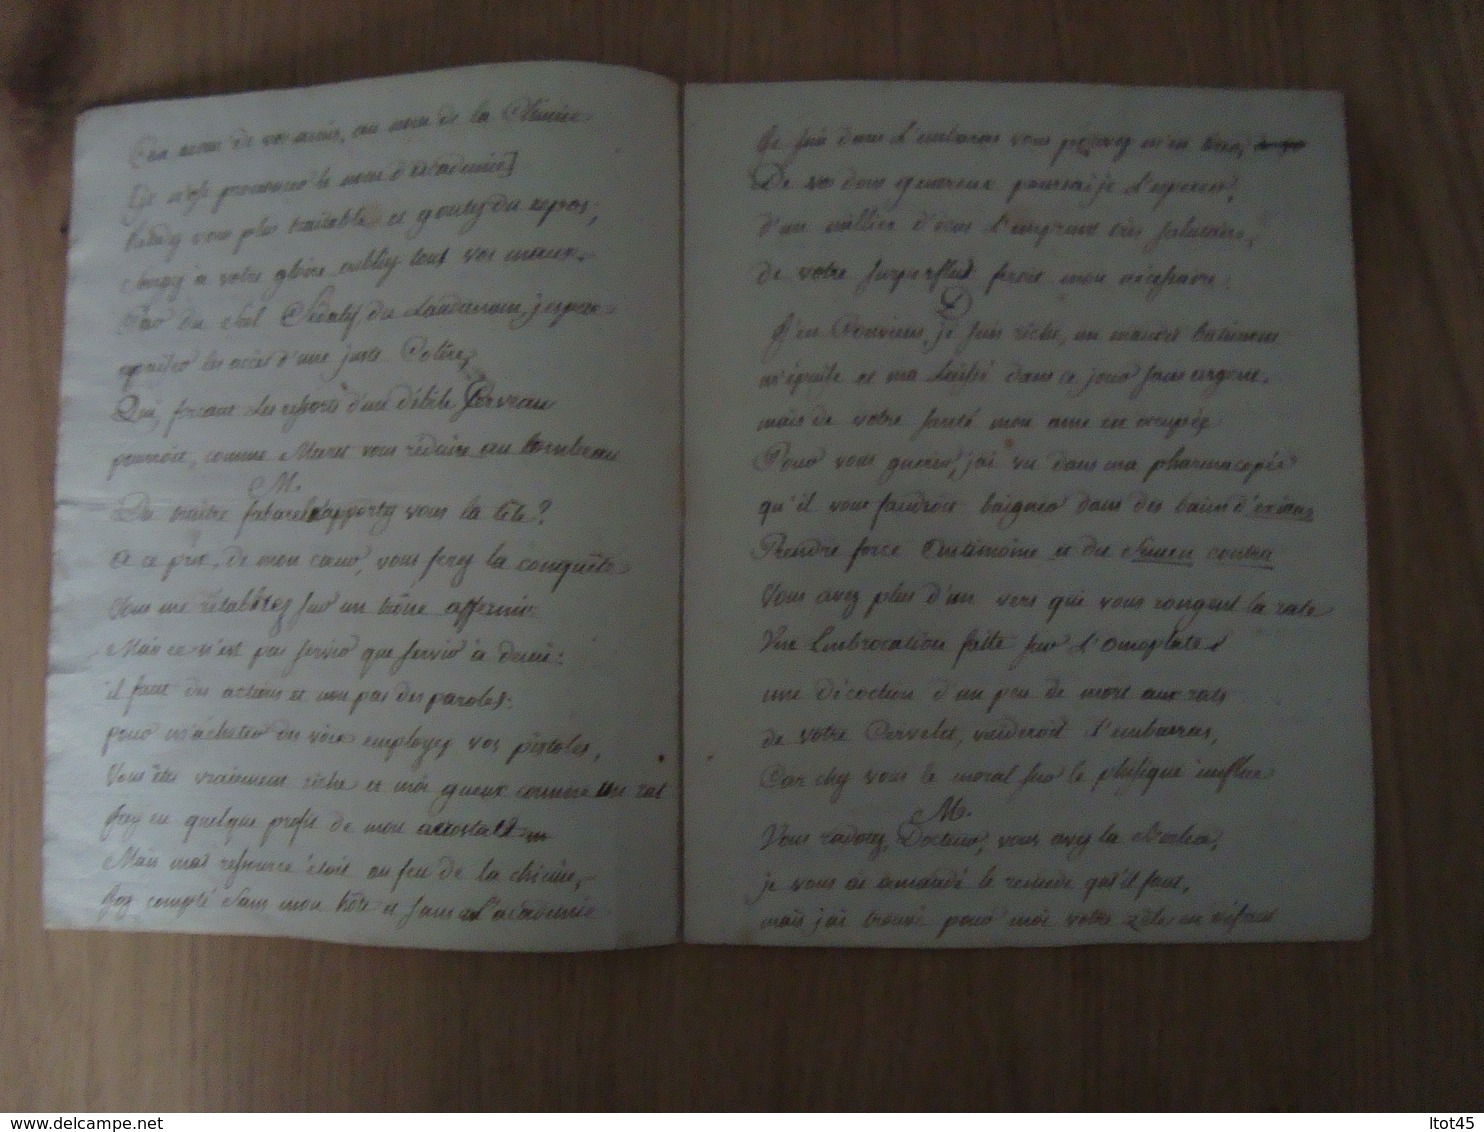 au nom de vos amis, au nom de la Chimie
(je n'ose prononcer le nom d'Academie)
vous plus traitable et goutez du repos,
songez à votre gloire oubliez tous vos maux.
du Sel Sédatif, du Laudanum, j'espere
apaiser les accès d'une juste Colère,
Qui, forcant les ressorts d'un débile Cerveau
pourroit, comme vous réduire au tombeau
M.
Du traitre l'apportez vous la tête?
a ce prix, de mon cœur, vous ferez la conquête
Vous me rétablirez sur un trône affermi
Mais ce n'est pas servir que servir à demi:
il faut des actions et non pas des paroles:
pour m'acheter des voix employez vos pistoles,
Vous êtes vraiment riche et moi gueux comme un rat
j'ay eu quelque profit de mon
Mais ma ressource étoit au feu de la chimie,
j'ay compté sans mon hôte et sans L'académie
Je suis dans L'embaras vous pouvez m'en tirer
De vos dons genereux pourrai je L'esperer,
d'un millier d'écus L'emprunt très salutaire,
de votre superflus feroit mon nécessaire.
D
J'en Conviens, je suis riche, un maudit batiment
m'épuise et ma Laissé dans ce jour sans argent.
mais de votre santé mon ame est occupée
Pour vous guerir, j'ai vu dans ma pharmacopée
qu'il vous faudroit baigner dans des bains d'
Prendre force Antimoine et du Semen contra
Vous avez plus d'un vers qui vous rongent la rate
Une Embrocation faite sur L'omoplate
une décoction d'un peu de mort aux rats
de votre Cervelet, videroit L'embarras,
Car chez vous le moral sur le phisique influe
M.
Vous radotez, Docteur, vous avez la Berlue,
je vous ai demandé le remede qu'il faut,
mais j'ai trouvé pour moi votre zèle en défaut
ltot45